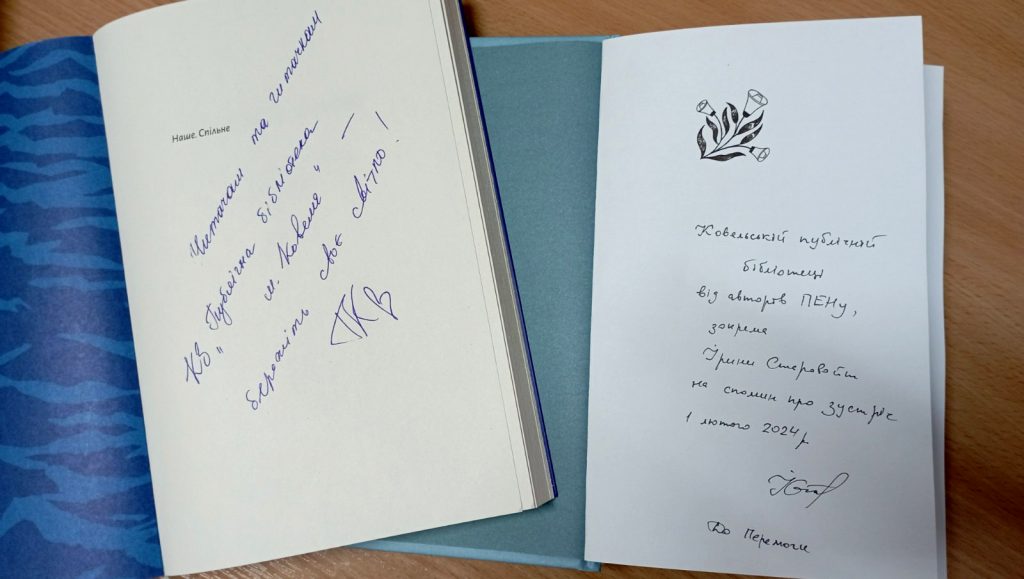 Наше. Спільне
Читачам та читачкам
КЗ "Публічна бібліотека
м. Ковеля" –
бережіть своє світло!
Ковельській публічній
бібліотеці
від авторів ПЕНу,
зокрема
Ірини Старовойт
на спомин про зустріч
1 лютого 2024 р
До Перемоги